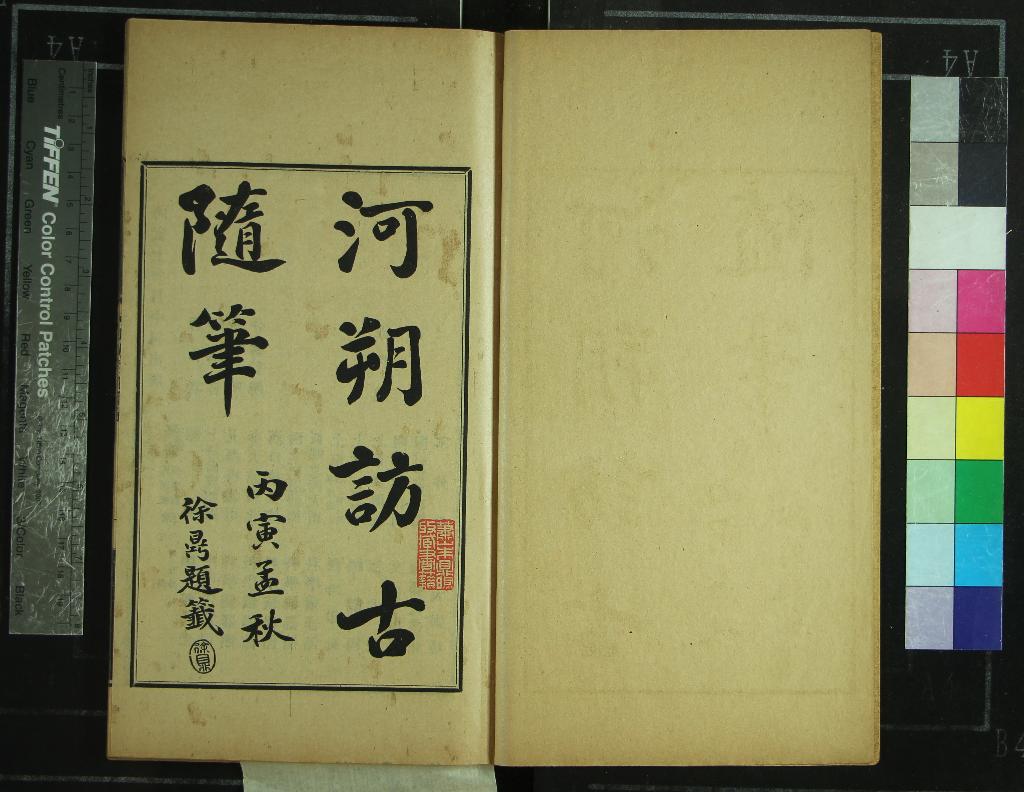 河朔訪古
隨筆
丙寅孟秋
徐鼎題籤
徐鼎
TIFFEN Color Control Patches
Blue Cyan Green Yellow Red Magenta White 3/Color Black
Centimetres
Inches
A4
A4